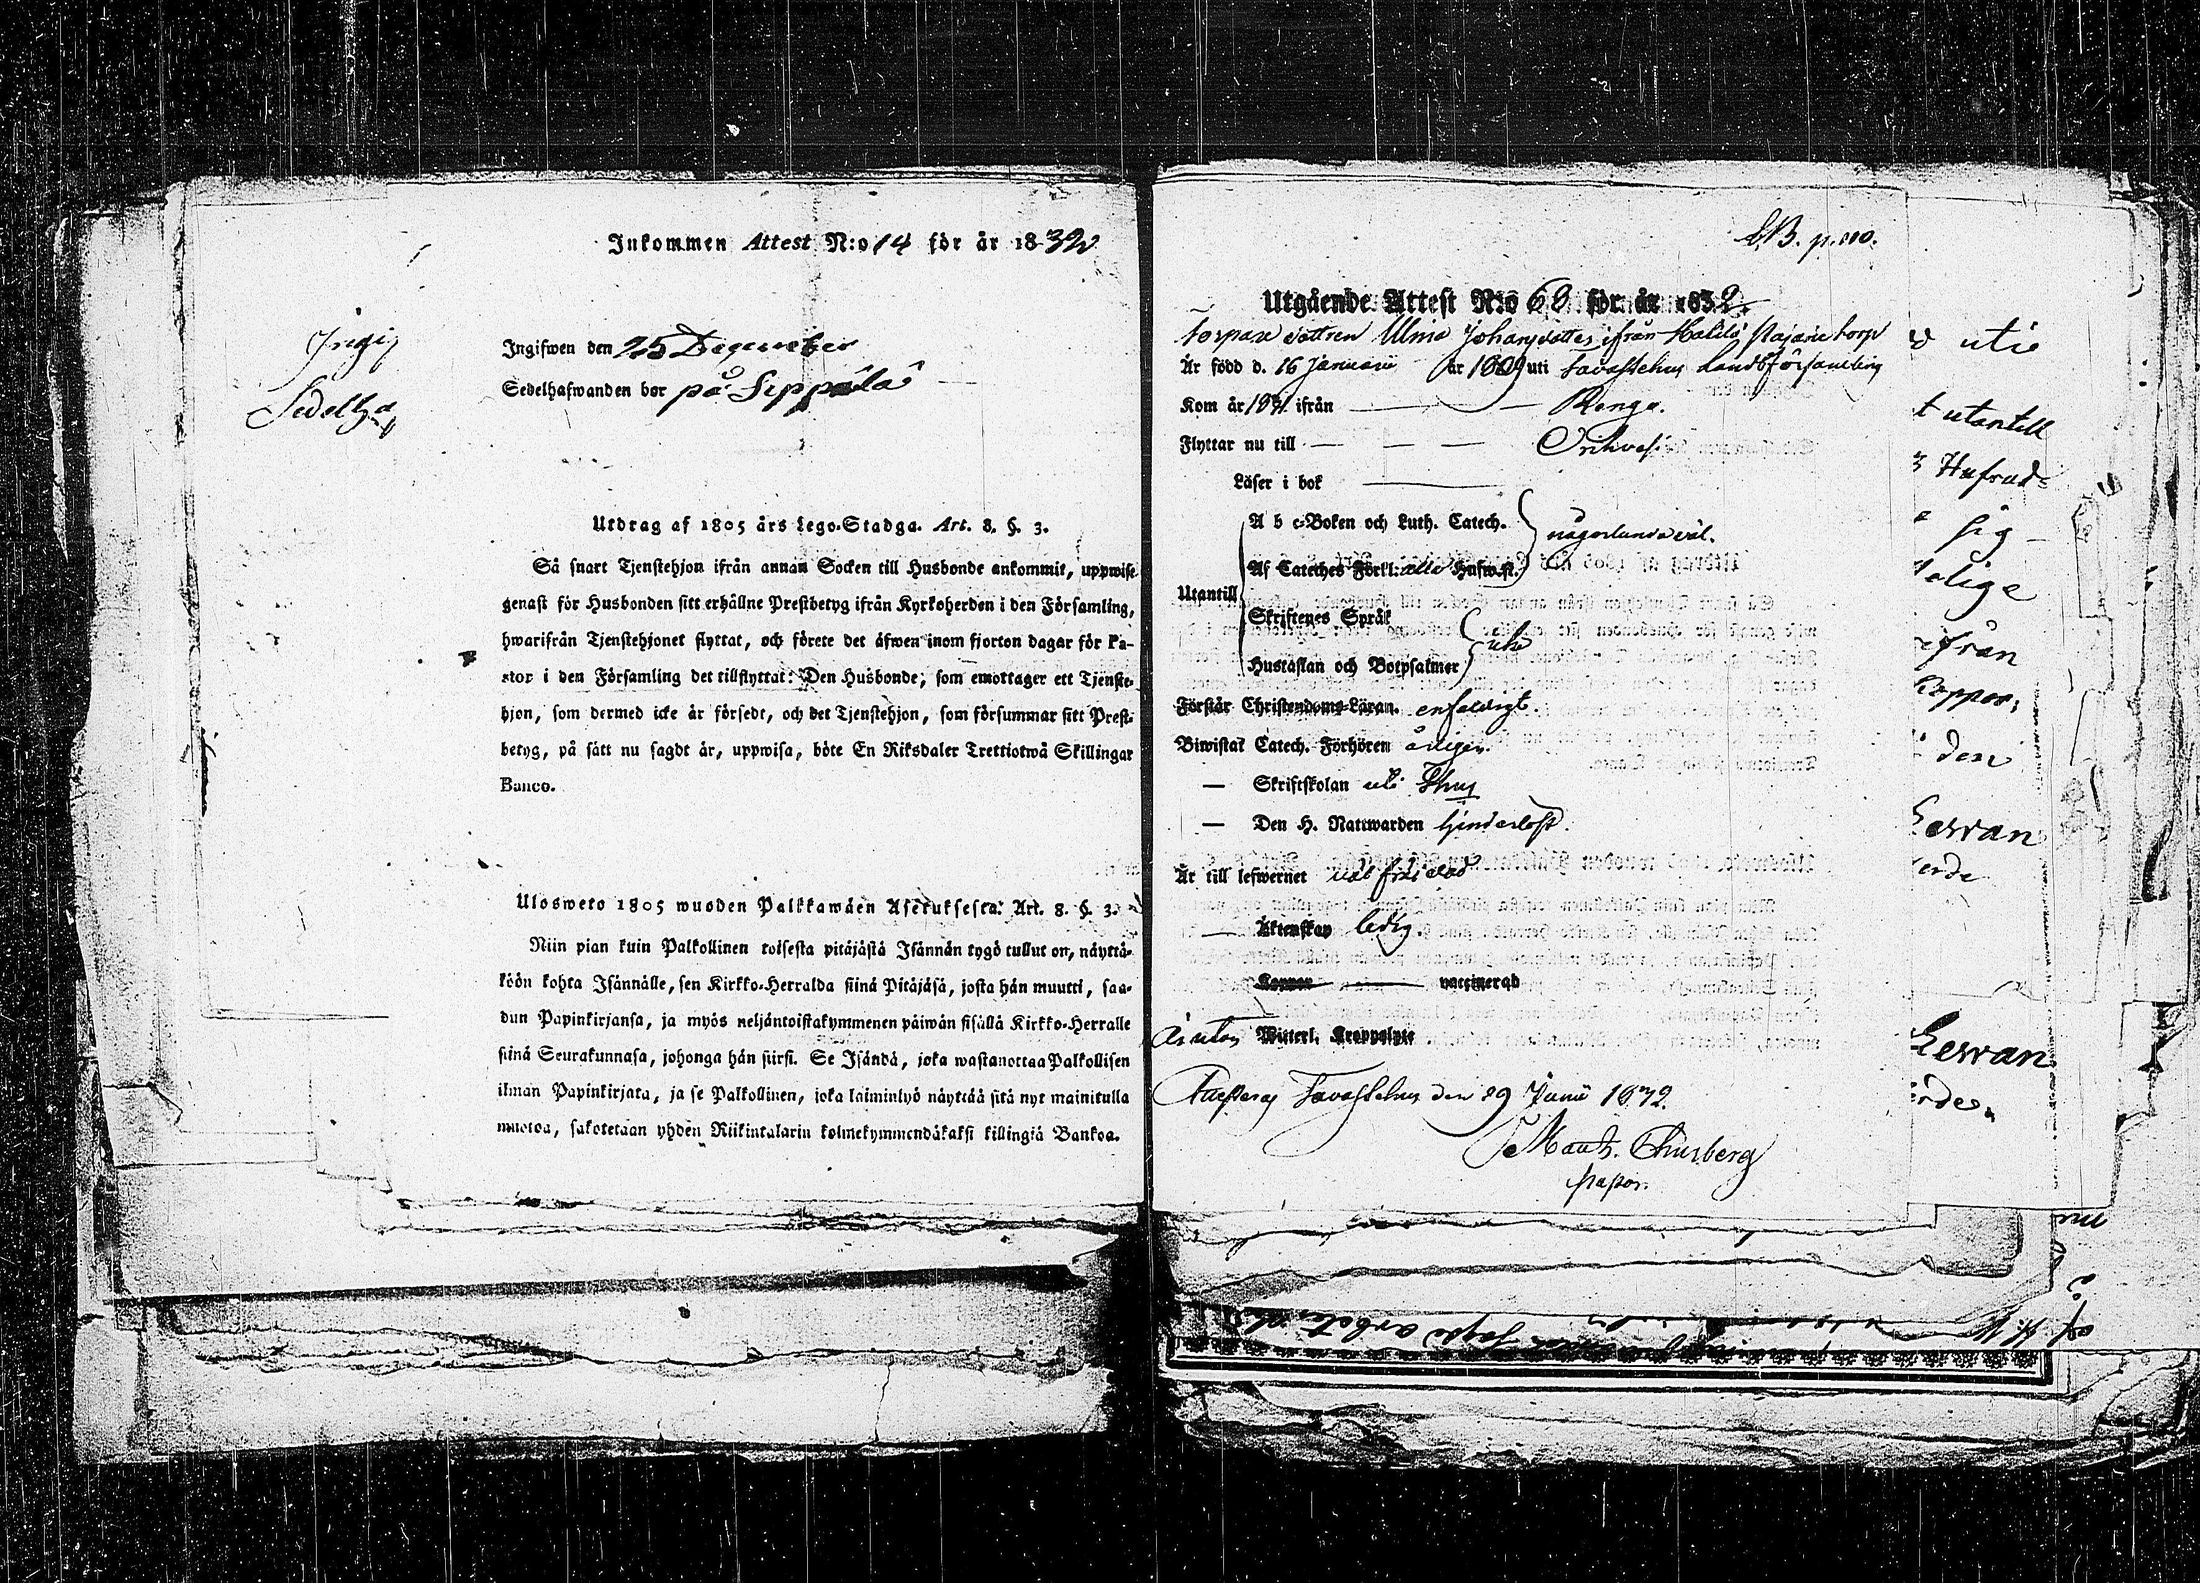 Inkommen Attest N:o 14 för år 1832
Ingi
Sedelha
Ingifwen den 25 December
Sedelhafwanden bor på Seppälä
Utdrag af 1805 års Lego-Stadga. Art. 8. §. 3.
Så snart Tjenstehjon ifrån annan Socken till Husbonde ankommit, uppwise
genast för Husbonden sitt erhållne Prestbetyg ifrån Kyrkoherden i den Församling,
hwarifrån Tjenstehjonet flyttat, och förete det äfwen inom fjorton dagar för Pa-
stor i den Församling det tillflyttat: Den Husbonde, som emottager ett Tjenste-
hjon, som dermed icke är försedt, och det Tjenstehjon, som försummar sitt Prest-
betyg, på sätt nu sagdt är, uppwisa, böte En Riksdaler Trettiotwå Skillingar
Banco.
Ulosweto 1805 wuoden Palkkawäen Asetuksesta: Art. 8. §. 3.
Niin pian kuin Palkollinen toisesta pitäjästä Isännän tygö tullut on, näyttä-
köön kohta Isännälle, sen Kirkko-Herralda siinä Pitäjäsä, josta hän muutti, saa-
dun Papinkirjansa, ja myös neljäntoistakymmenen päiwän sisällä Kirkko-Herralle
siinä Seurakunnasa, johonga hän siirsi. Se Isändä, joka wastanottaa Palkollisen
ilman Papinkirjata, ja se Palkollinen, joka laiminlyö näyttää sitä nyt mainitulla
muotoa, sakotetaan yhden Riikintalarin kolmekymmendäkaksi killingiä Bankoa.
Utgående Attest N:o 68 för år 1832.
Torpare dottren Ulrica Johansdotter ifrån torp
Är född d. 16 Januarii år 1809 uti Tavastehus Landsförsamling
Kom år 1831 ifrån — Renga.
Flyttar nu till — — — Orihvesi
Läser i bok —
A b c-Boken och Luth. Catech.
någorlunda väl.
Af Cateches Förkl: alla Hufwst.
Utantill
Skriftenes Språk
Hustaflan och Botpsalmer
Förstår Christendoms-Läran. enfaldigt.
Biwistat Catech. Förhören årligen.
— Skriftskolan uti
— Den H. Nattwarden hinderlöst.
Är till lefwernet väl frejdad
— Äktenskap ledig.
Koppor — vaccinerad
Är utan Witterl. Kroppslyte
Tavastehus den 29 Junii 1832.
utie
t utantill
Hufvud-
sig
ifrån
Koppor;
den
Lewan
erde
Lewan